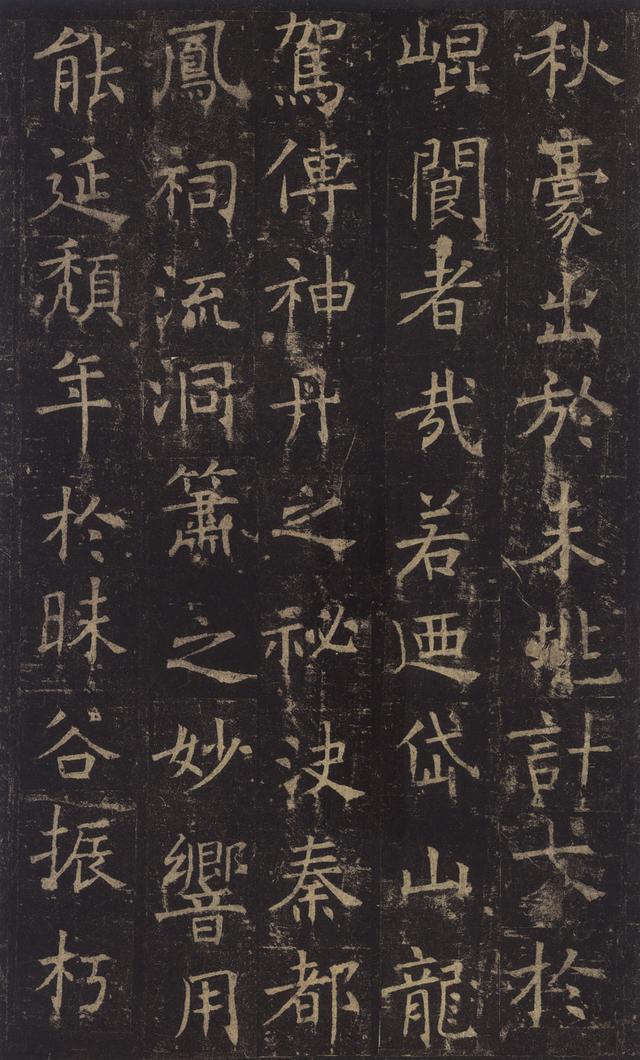 秋豪出於未兆計大於
崐閬者哉若迺岱山龍
駕傳神丹之祕決秦都
鳳祠流洞簫之妙響用
能延頹年於昧谷振朽